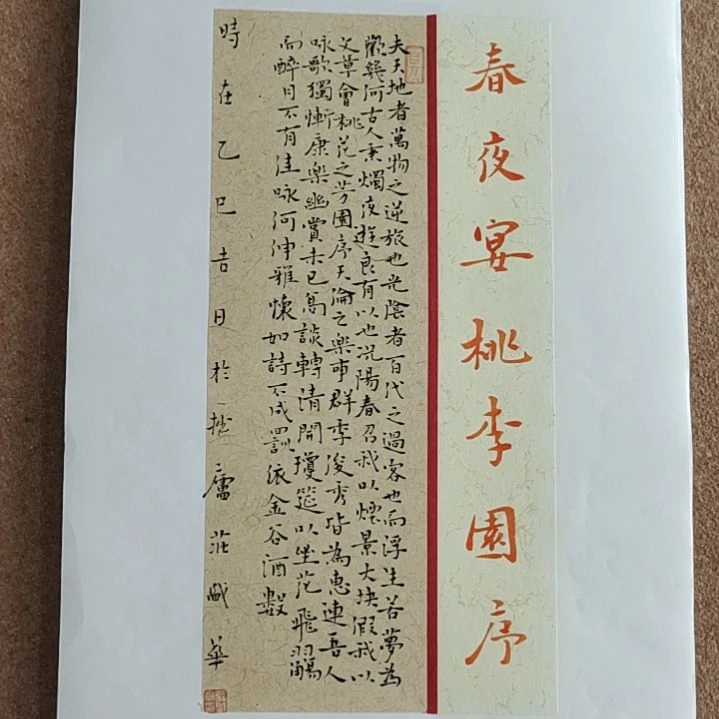 春夜宴桃李園序
夫天地者萬物之逆旅也光陰者百代之過客也而浮生若夢為
歡幾何古人秉燭夜遊良有以也況陽春召我以煙景大块假我以
文章會桃花之芳園序天倫之樂事群季俊秀皆為惠連吾人
咏歌獨慚康樂幽賞未已高談轉清開瓊筵以坐花飛羽觴
而醉月不有佳咏何伸雅懷如詩不成罰依金谷酒數
時在乙巳吉日於拙廬莊盛華